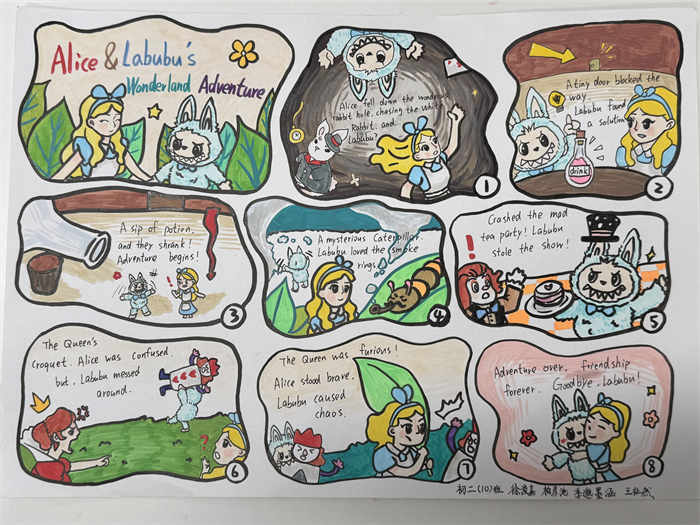 Alice & Labubu's
Wonderland Adventure
Alice fell down the wondrous
rabbit hole, chasing the White
Rabbit and
Labubu?
1
A tiny door blocked the
way.
Labubu found
a solution
drink
2
A sip of potion,
and they shrank!
Adventure begins!
3
A mysterious Caterpillar.
Labubu loved the smoke
rings.
4
Crashed the mad
tea party! Labubu
stole the show!
5
The Queen's
Croquet. Alice was confused.
but, Labubu messed
around.
6
The Queen was furious!
Alice stood brave,
Labubu caused
chaos.
7
Adventure over, friendship
forever. Goodbye, Labubu!
8
初二(10)班